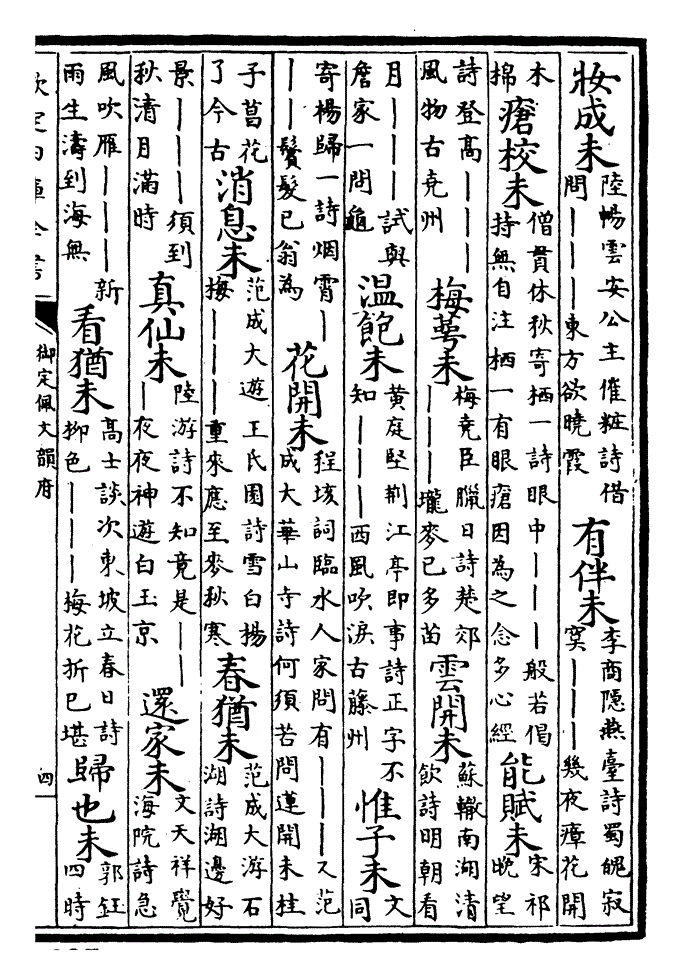 妝成未
陸暢雲安公主催粧詩借
問｜｜｜東方欲曉霞
有伴未
李商隱燕臺詩蜀魄寂
寞｜｜｜幾夜瘴花開
木
棉
瘡校未
僧貫休秋寄栖一詩眼中｜｜｜般若偈
持無自注栖一有眼瘡因為之念多心經
能賦未
宋祁
晚望
詩登高｜｜｜
風物古兗州
梅萼未
梅堯臣臘日詩楚郊
｜｜｜隴麥已多苗
雲開未
蘇轍南湖清
飲詩明朝看
月｜｜｜試與
詹家一問龜
温飽未
黃庭堅荆江亭即事詩正字不
知｜｜｜西風吹淚古藤州
惟子未
文
同
寄楊歸一詩烟霄｜
｜｜鬢髮已翁為
花開未
程垓詞臨水人家問有｜｜｜又范
成大華山寺詩何須苦問蓮開未柱
子菖花
了今古
消息未
范成大遊王氏園詩雪白楊
梅｜｜｜重來應至麥秋寒
春猶未
范成大游石
湖詩湖邊好
景｜｜｜須到
秋清月滿時
真仙未
陸游詩不知竟是｜｜
｜夜夜神遊白玉京
還家未
文天祥覺
海院詩急
風吹雁｜｜｜新
雨生濤到海無
看猶未
高士談次東坡立春日詩
柳色｜｜｜梅花折已堪
歸也未
郭鈺
四時
欽定四庫全書
御定佩文韻府
四